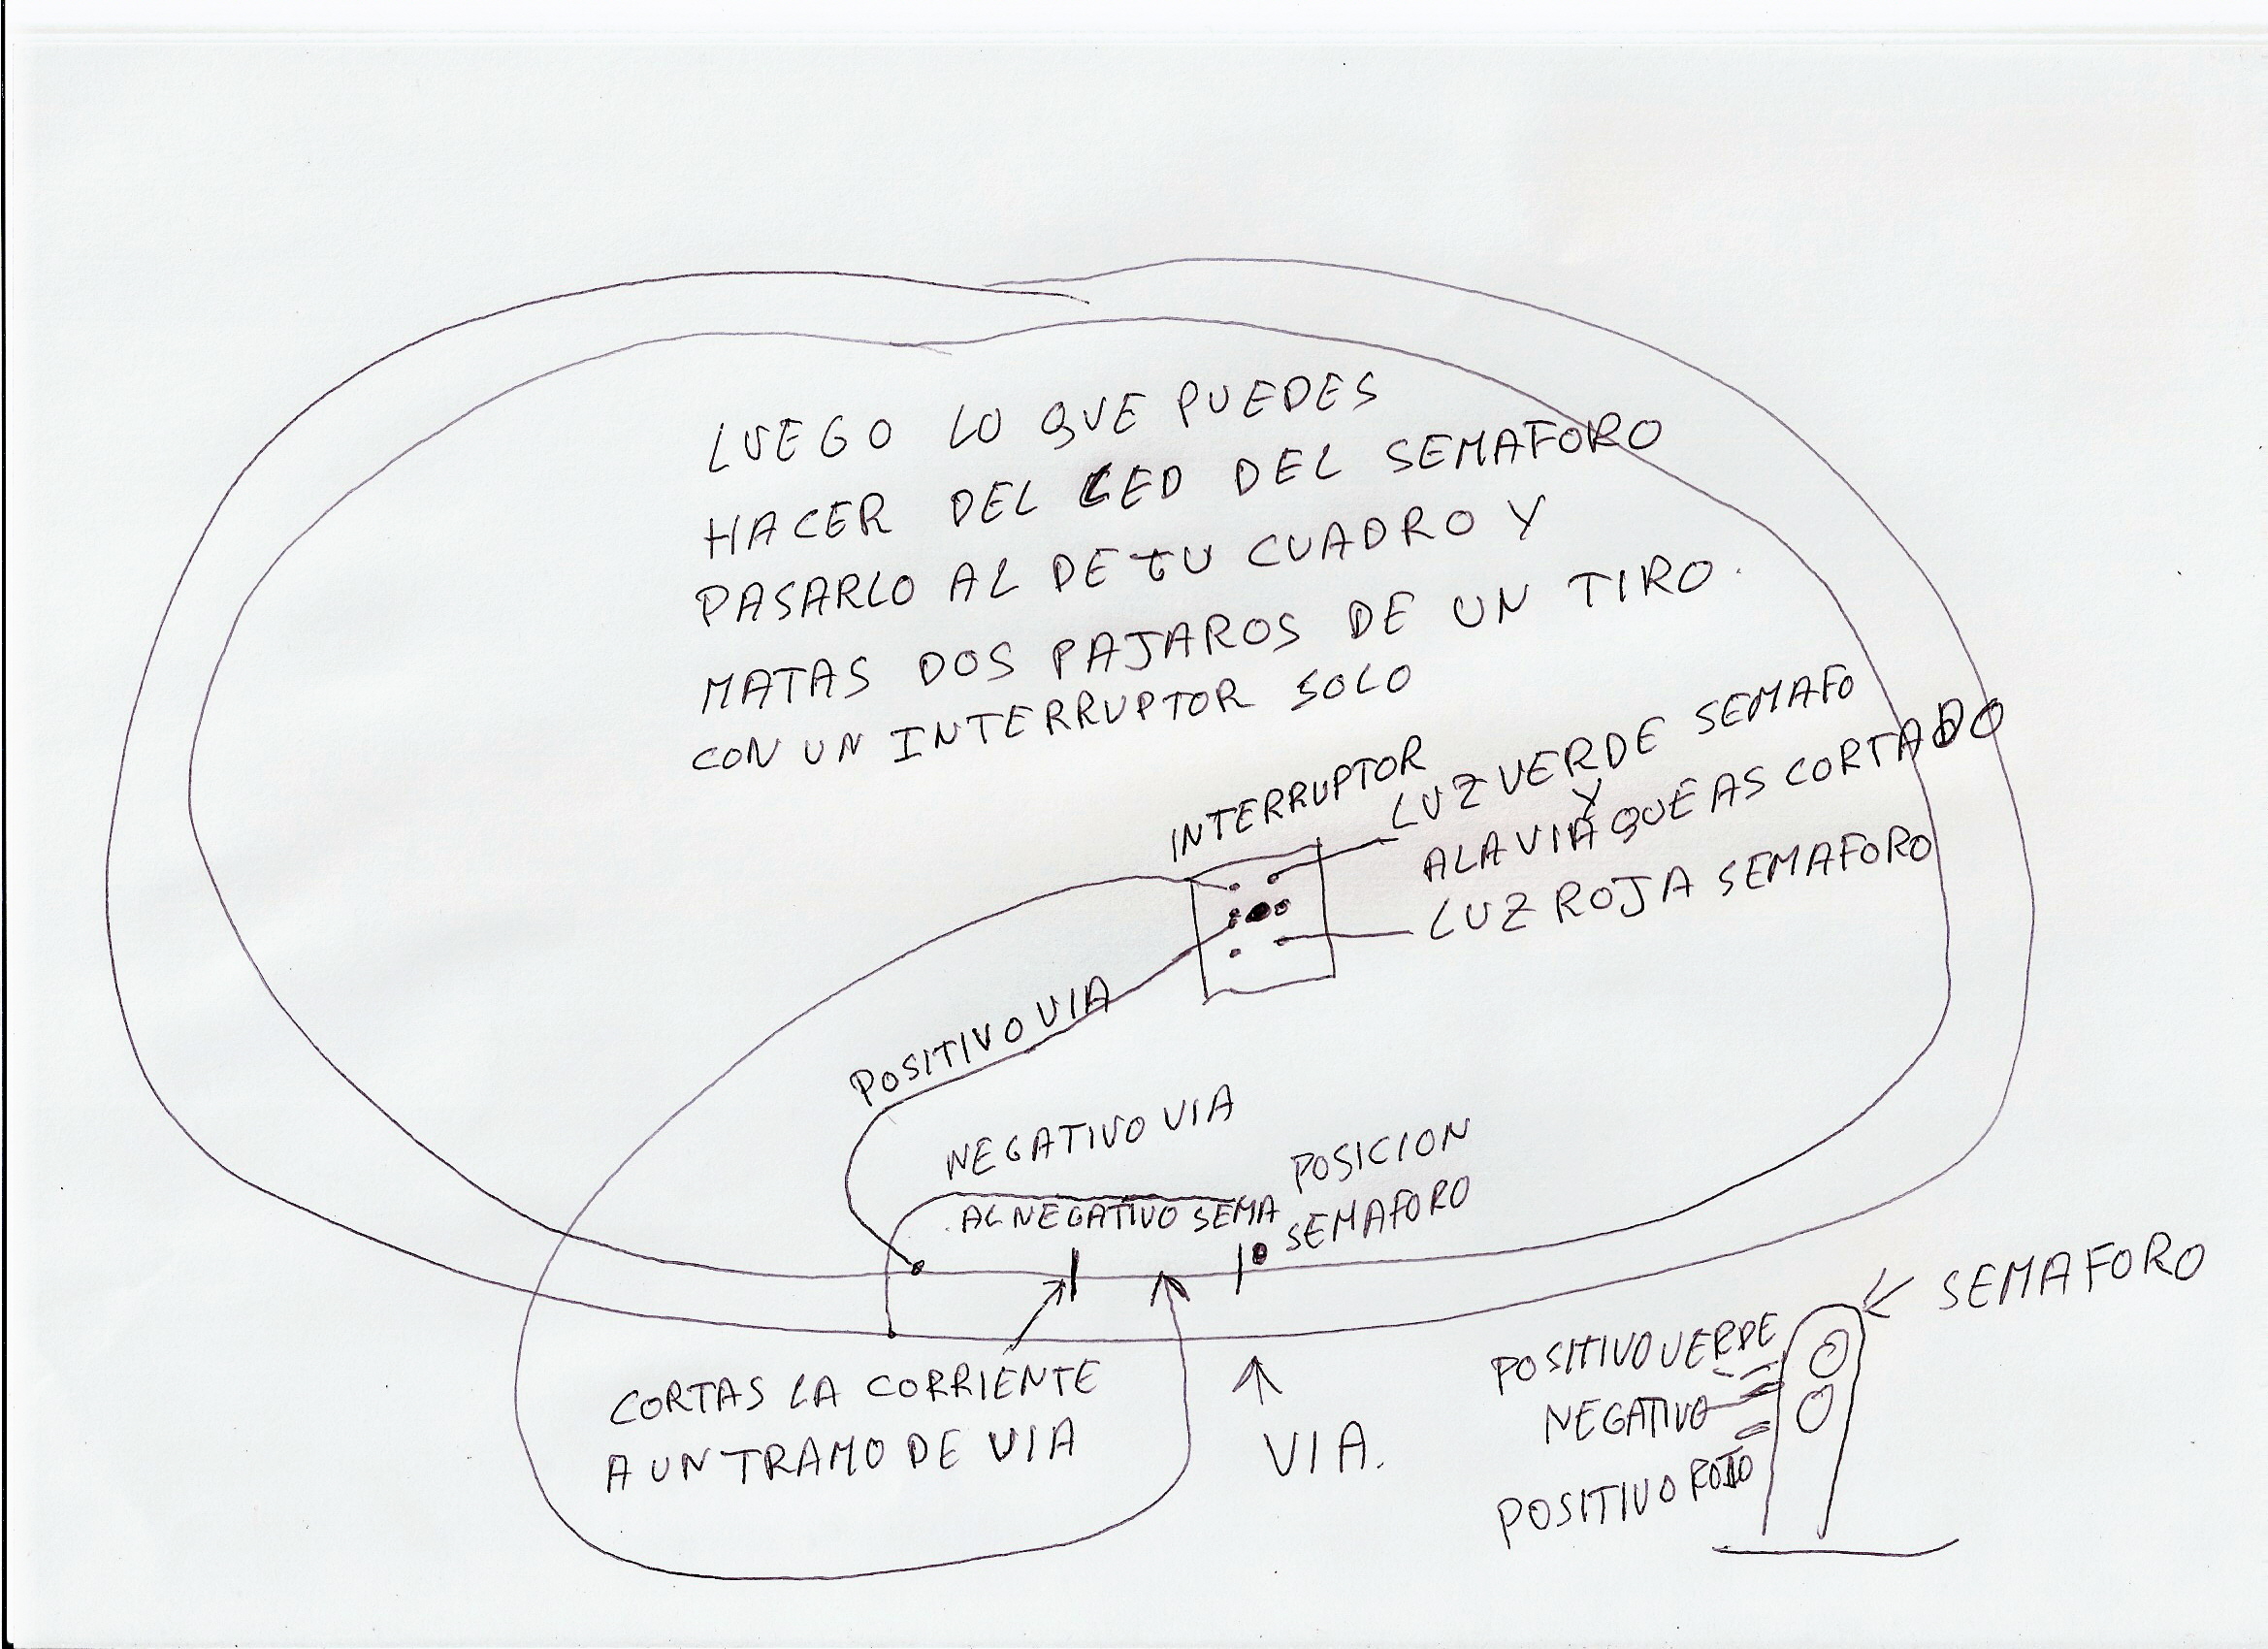 LUEGO LO QUE PUEDES
HACER DEL LED DEL SEMAFORO
PASARLO AL DE TU CUADRO Y
MATAS DOS PAJAROS DE UN TIRO.
CON UN INTERRUPTOR SOLO
INTERRUPTOR
LUZ VERDE SEMAFO
Y
A LA VIA QUE AS CORTADO
LUZ ROJA SEMAFORO
POSITIVO VIA
NEGATIVO VIA
AL NEGATIVO SEMA
POSICION
SEMAFORO
CORTAS LA CORRIENTE
A UN TRAMO DE VIA
VIA.
SEMAFORO
POSITIVO VERDE
NEGATIVO
POSITIVO ROJO